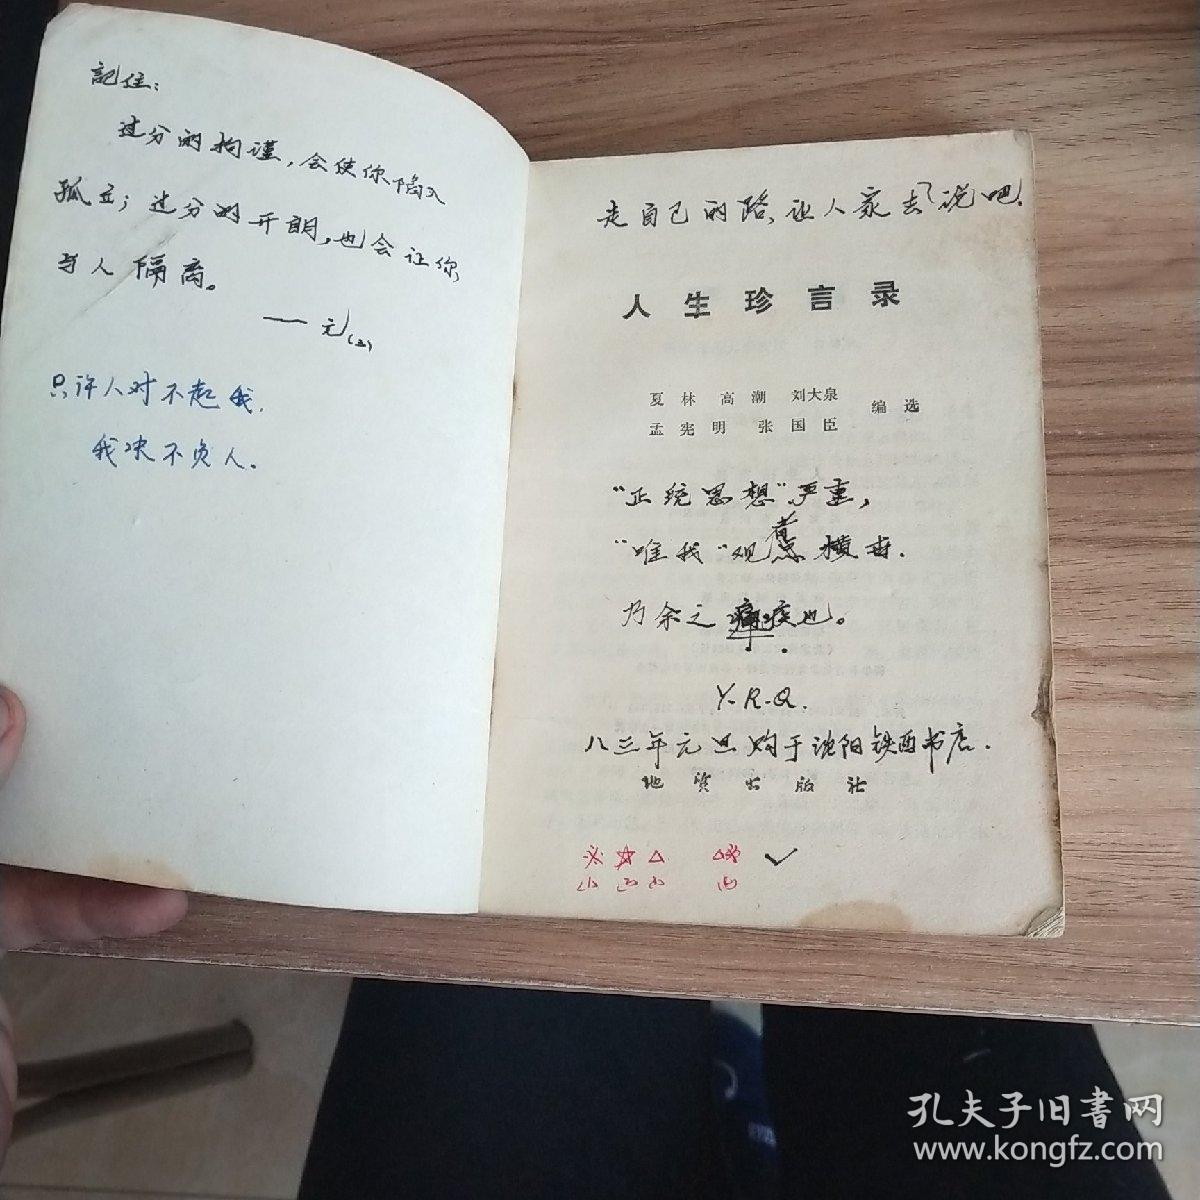 記住:
过分的拘谨,会使你陷入
孤立;过分的开朗,也会让你
与人隔离。
——元(2)
只许人对不起我.
我决不负人.
走自己的路,让人家去说吧.
人生珍言录
夏林 高潮 刘大泉
孟宪明 张国臣 编选
“正统思想”严重,
“唯我”观念横
乃余之 疾也。
Y.R.Q.
八三年元旦购于沈阳铁西书店.
地质出版社
孔夫子旧書网
www.kongfz.com